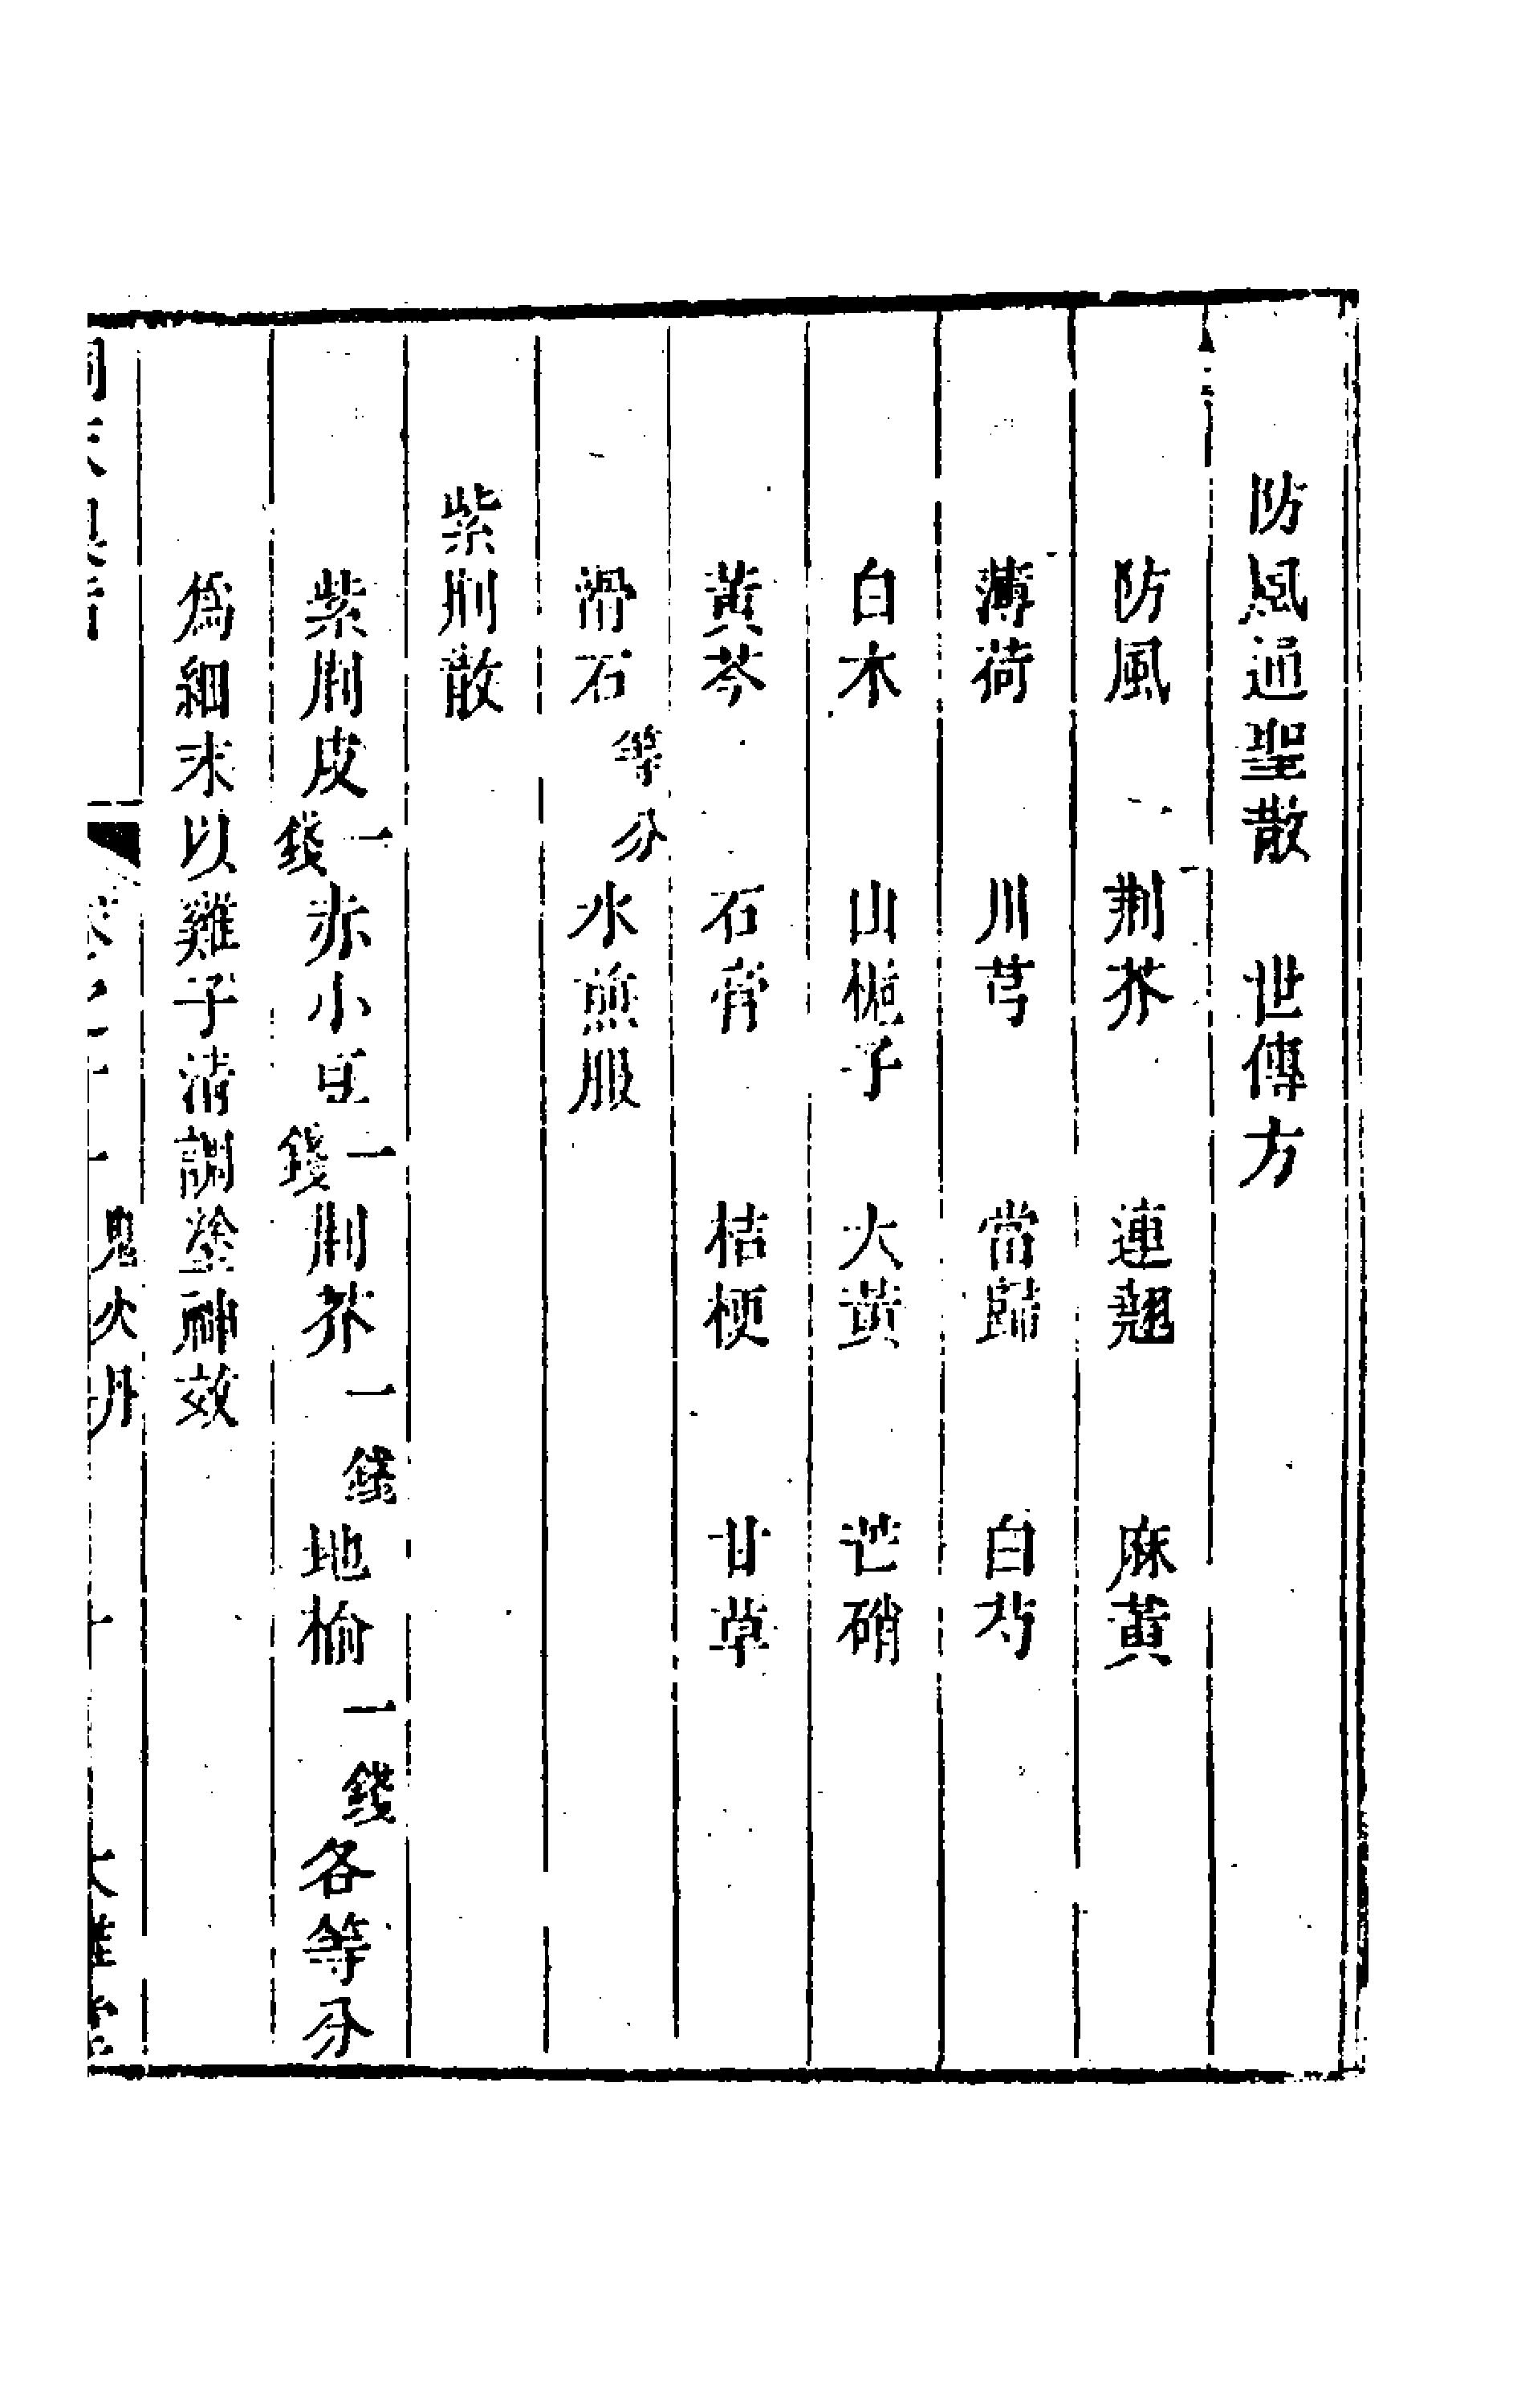 防風通聖散　世傳方
防風　荆芥　連翹　麻黃
薄荷　川芎　當歸　白芍
白木　山梔子　大黃　芒硝
黃芩　石膏　桔梗　甘草
滑石等分水煎服
紫荆散
紫荆皮一錢赤小豆一錢荆芥一錢地榆一錢各等分
爲細末以雞子清調塗神效
鬼火丹